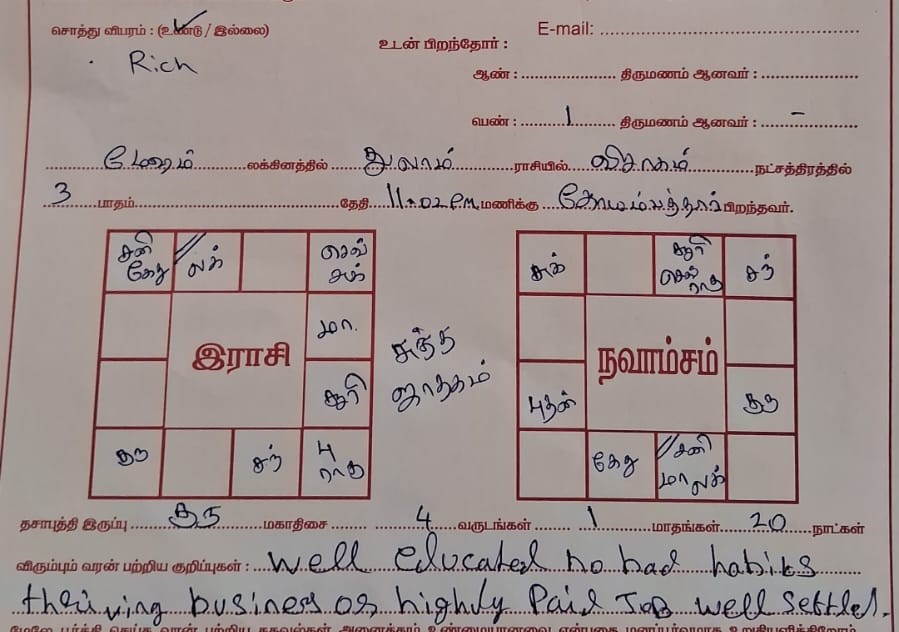 சொத்து விபரம் : (உண்டு / இல்லை) E-mail: ..........
Rich உடன் பிறந்தோர் :
ஆண் : .......... திருமணம் ஆனவர் : ..........
பெண் : ....1.... திருமணம் ஆனவர் : ....-....
மேஷம் லக்கினத்தில் துலாம் ராசியில் விசாகம் நட்சத்திரத்தில்
3 பாதம் தேதி 11.02 PM மணிக்கு பிறந்தவர்.
சனி கேது லக் செவ் சுக்
மா.
சூரி
குரு சந் பு ராகு
இராசி
சுத்த
ஜாதகம்
சுக் சூரி செவ் ராகு சந்
புதன் குரு
கேது சனி மா லக்
நவாம்சம்
தசாபுத்தி இருப்பு குரு மகாதிசை 4 வருடங்கள் 1 மாதங்கள் 20 நாட்கள்
விரும்பும் வரன் பற்றிய குறிப்புகள் : well educated no bad habits
thriving business or highly Paid Job well settled.